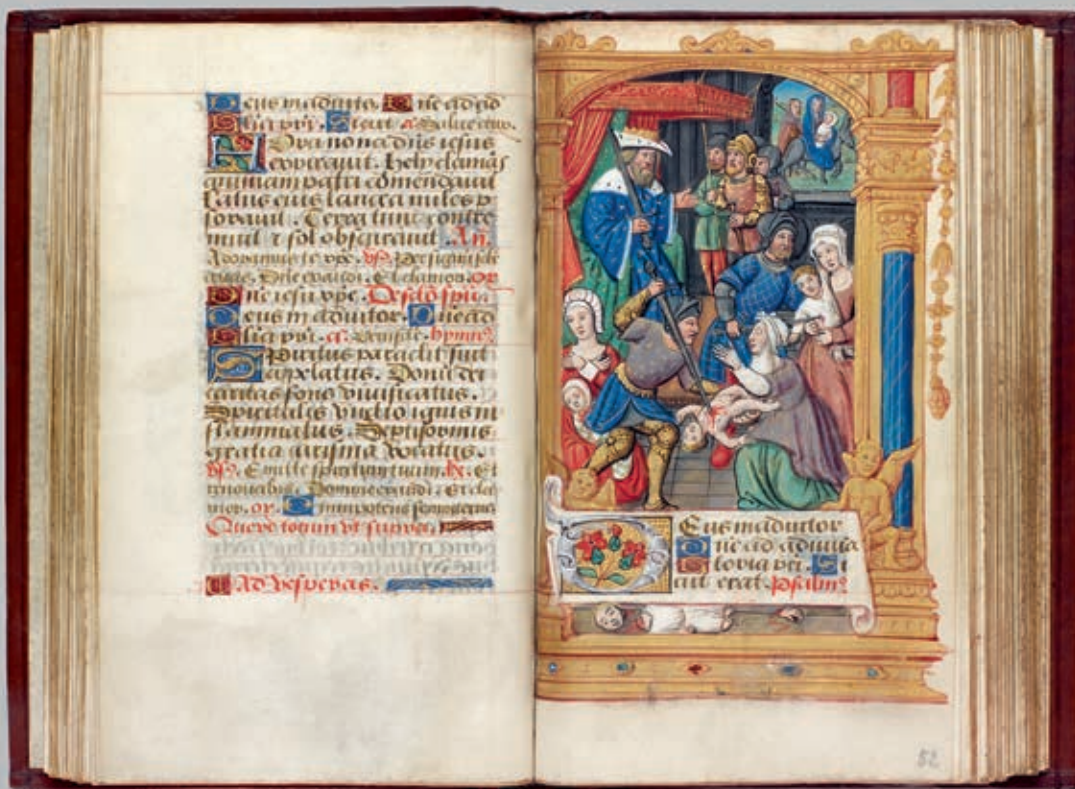 Deus in adiuto. Dne ad ad
Glia pri. Sicut a. Salue
Hora nona dns iesus
expirauit. Hely clamās
animam patri cōmendauit
Latus eius lancea miles p
forauit. Terra tunc contre
muit et sol obscurauit. An.
Adoramus te xpe. vs. Per
Dne exaudi. Et clamor. or
Dne iesu xpe. De scō spū.
Deus in adiutor. Dne ad
Glia pri. a. Veni hymnꝰ
Spiritus paraclit fuit
appelatus. Donū dei
caritas fons viuificatus.
Spiritalis vnctio ignis in
flammatus. Septiformis
gratia carisma vocatus.
vs. Emitte spiritum tuum. R. Et
renouabis. Domine exaudi. Et cla
mor. or. Omnipotens sempiterne
Quere totum vt supra.
Ad vesperas.
Deus in adiutor
Dne ad adiuua
Gloria pri. Si
cut erat. psalmꝰ
52